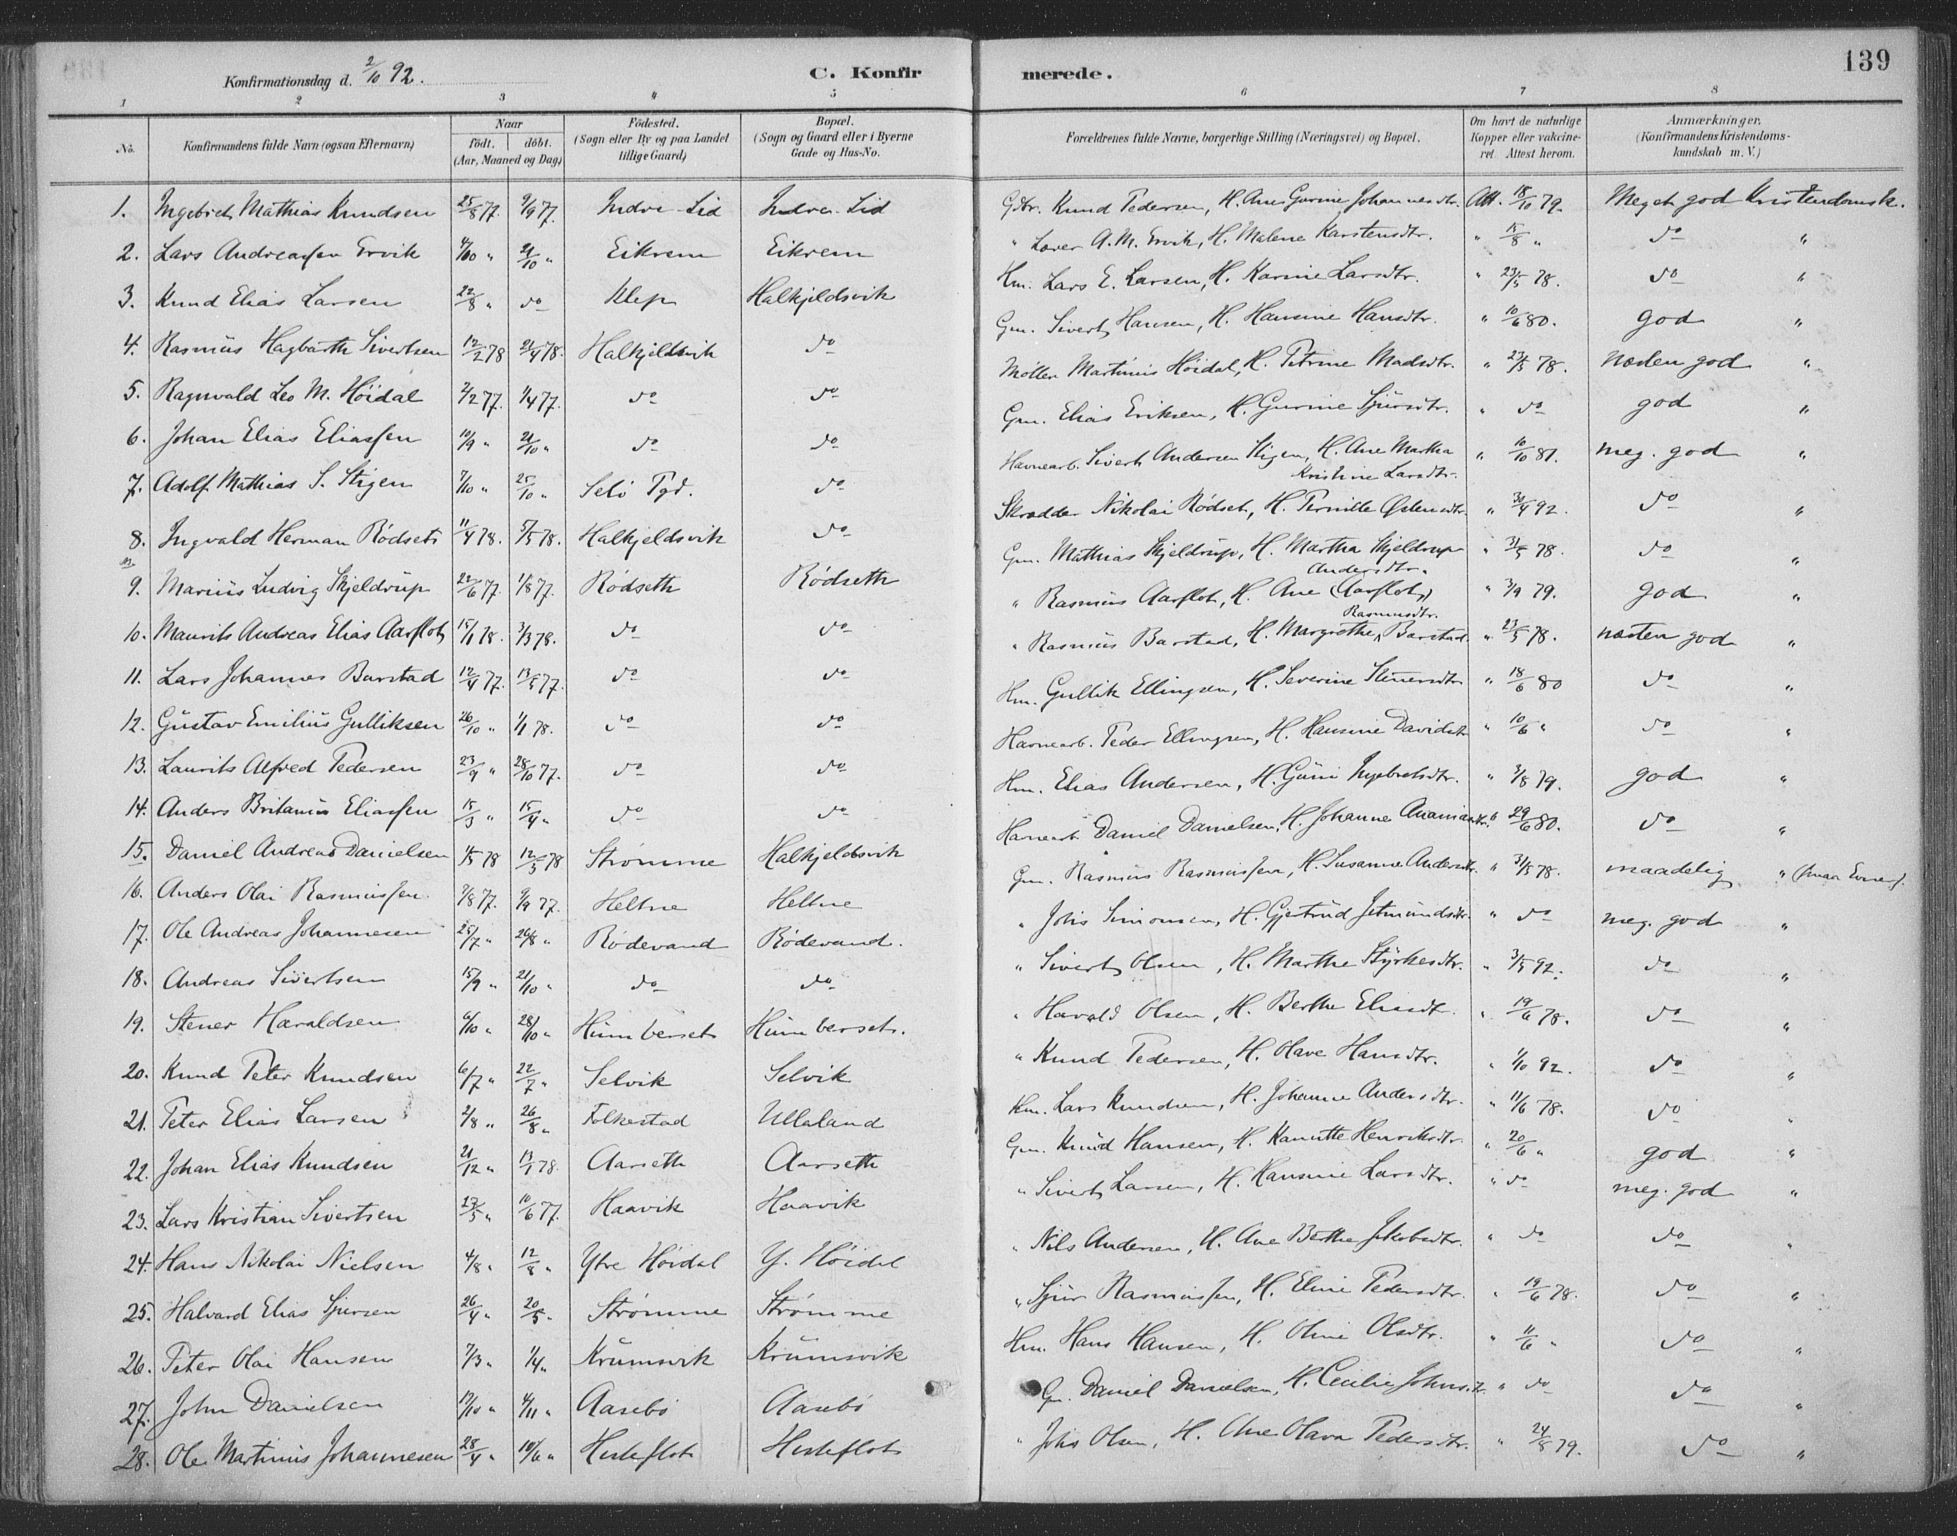 139
Konfirmationsdag d. 2/10 92.
C. Konfirmerede.
1 2 3 4 5 6 7 8
No. Konfirmandens fulde Navn (ogsaa Efternavn) Naar født. døbt. (Aar, Maaned og Dag) Fødested. (Sogn eller By og paa Landet tillige Gaard) Bopæl. (Sogn og Gaard eller i Byerne Gade og Hus-No. Forældrenes fulde Navne, borgerlige Stilling (Næringsvei) og Bopæl. Om havt de naturlige Kopper eller vakcineret. Attest herom. Anmærkninger. (Konfirmandens Kristendomskundskab m. V.)
1. Ingebret Mathias Knudsen 25/8 77. 9/9 77. Indre-Lid Indre-Lid Gbr. Knud Pedersen, H. Ane Gurine Johannesdtr. Att. 18/10 79. Meget god Kristendomsk.
2. Lars Andreassen Ervik 4/10 " 21/10 " Eikrem Eikrem " Lærer A. M. Ervik, H. Malene Karstensdtr. " 15/8 " do "
3. Knud Elias Larsen 22/8 " do Klep Halkjeldsvik Hm. Lars E. Larsen, H. Karine Larsdtr. " 23/5 78. do "
4. Rasmus Hagbarth Sivertsen 12/2 78 21/4 78. Halkjeldsvik do Gm. Sivert Hansen, H. Hansine Hansdtr. " 10/6 80. god "
5. Ragnvald Leo M. Höidal 2/2 77. 1/4 77. do do Möller Martinus Höidal, H. Petrine Madsdtr. " 23/5 78. næsten god "
6. Johan Elias Eliassen 10/9 " 21/10 " do do Gm. Elias Eriksen, H. Gurine Sjursdtr. " do god "
7. Adolf Mathias S. Stigen 7/10 " 25/10 " Selö Pgd. do Havnearb. Sivert Andersen Stigen, H. Ane Martha Kristine Larsdtr. " 10/10 81. meg. god "
8. Ingvald Herman Rödset 11/4 78. 5/5 78. Halkjeldsvik do Skrædder Nikolai Rödset, H. Pernille Østensdtr. " 30/4 92. do "
9. Marius Ludvig Skjeldrup 22/6 77. 1/8 77. Rödseth Rödseth Gm. Mathias Skjeldrup, H. Martha Skjeldrup Andersdtr. " 31/5 78. do "
10. Maurits Andreas Elias Aarflot 15/1 78. 3/3 78. do do " Rasmus Aarflot, H. Ane (Aarflot) " 3/9 79. god "
11. Lars Johannes Barstad 12/4 77. 13/5 77. do do " Rasmus Barstad, H. Margrethe Rasmusdtr. Barstad " 23/5 78. næsten god "
12. Gustav Emilius Gulliksen 26/10 " 1/1 78. do do Hm. Gullik Ellingsen, H. Severine Stenersdtr " 18/6 80 do "
13. Laurits Alfred Pedersen 23/9 " 28/10 77. do do Havnearb. Peder Ellingsen, H. Hansine Davidsdtr " 10/6 " do "
14. Anders Britanius Eliassen 15/3 " 15/4 " do do Hm. Elias Andersen, H. Guri Ingebretsdtr. " 3/8 79. god "
15. Daniel Andreas Danielsen 1/5 78 12/5 78 Strømme Halkjeldsvik Havnearb Daniel Danielsen, H. Johanne Ananiasdtr. " 29/6 80. do "
16. Anders Olai Rasmussen 9/8 77. 9/9 77. Heltne Heltne Gm. Rasmus Rasmussen, H. Susanne Andersdtr. " 31/5 78. maadelig " (smaa Evner).
17. Ole Andreas Johannesen 25/7 " 26/8 " Rödevand Rödevand. " Johs Simonsen, H. Gjertrud Jetmundsdtr. " do meg. god "
18. Andreas Sivertsen 15/9 " 21/10 " do do " Sivert Olsen, H. Marthe Styrkesdtr. " 3/5 92. do "
19. Stener Haraldsen 6/10 " 28/10 " Humberset Humberset. " Harald Olsen, H. Berthe Eliasdtr. " 19/6 78. do "
20. Knud Peter Knudsen 6/7 " 22/7 " Selvik Selvik " Knud Pedersen, H. Olave Hansdtr. " 1/10 92. do "
21. Peter Elias Larsen 2/8 " 26/8 " Folkestad Ullaland Hm. Lars Knudsen, H. Johanne Andersdtr. " 11/6 78. do "
22. Johan Elias Knudsen 21/12 " 13/1 78. Aarseth Aarseth Gm. Knud Hansen, H. Kanutte Henriksdtr. " 20/6 " god "
23. Lars Kristian Sivertsen 23/5 " 10/6 77. Haavik Haavik " Sivert Larsen, H. Hansine Larsdtr. " do meg. god "
24. Hans Nikolai Nielsen 4/8 " 12/8 " Ytre Höidal Y. Höidal " Nils Andersen, H. Ane Berthe Jakobsdtr. " do do "
25. Halvard Elias Sjursen 26/4 " 20/5 " Strömme Strömme " Sjur Rasmussen, H. Eline Pedersdtr. " 19/6 78. do "
26. Peter Olai Hansen 7/3 " 1/4 " Krumsvik Krumsvik Hm. Hans Hansen, H. Oline Olsdtr. " 11/6 " do "
27. John Danielsen 12/10 " 4/11 " Aasebö Aasebö Gm. Daniel Danielsen, H. Cecilie Johnsdtr. " do do "
28. Ole Martinus Johannesen 28/4 " 10/6 " Hesteflot Hesteflot " Johs Olsen, H. Ane Olava Pedersdtr. " 24/8 79. do "